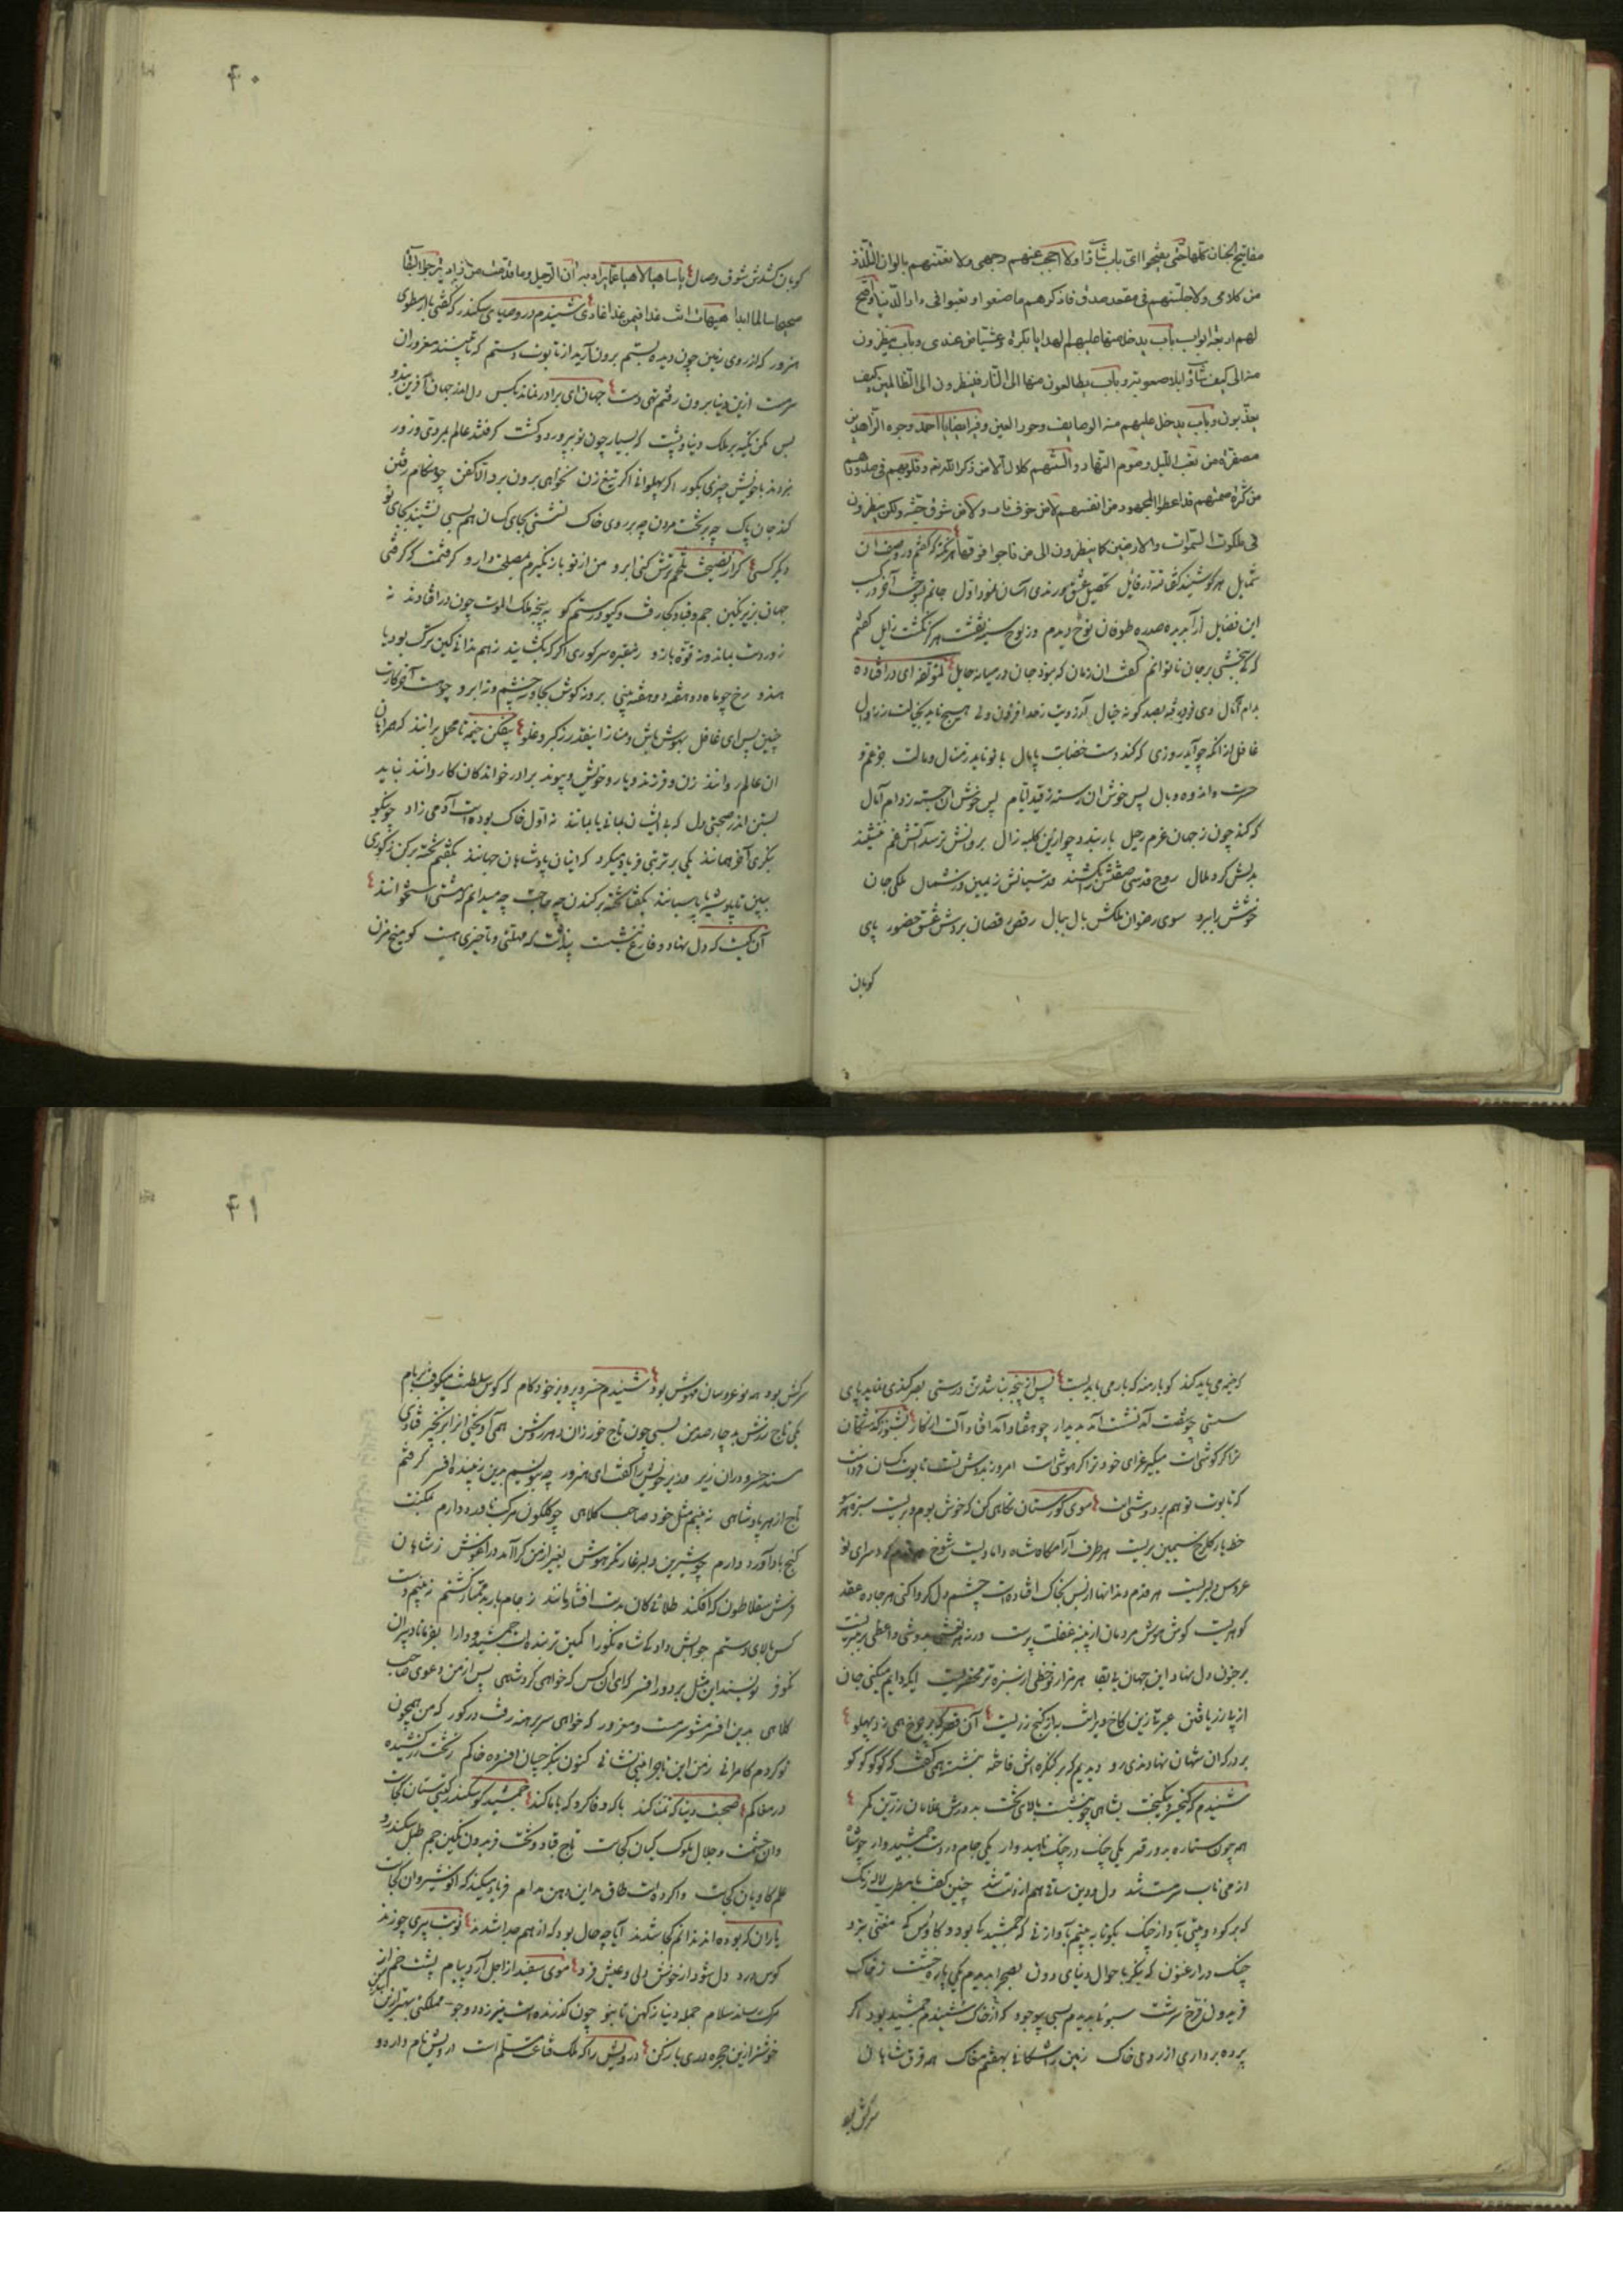 مفاتیح الجنان کلها حتی یفتحوا ای باب شاؤا ولا احجب عنهم وجهی ولا نعمنهم بالوان التلذذ
من کلامی ولاجلسنهم فی مقعد صدق فاذکرهم ما صنعوا و تعبوا فی دار الدنیا وافتح
لهم اربعة ابواب باب یدخل منها علیهم الهدایا بکرة وعشیا من عندی وباب ینظرون
منه الی کیف شاؤا بلا صعوبة وباب یطالعون منها الی النار فینظرون الی الظالمین کیف
یعذبون وباب یدخل علیهم منه الوصایف وحور العین وفیه ایضا یا احمد وجوه الزاهدین
مصفرة من تعب اللیل وصوم النهار والسنتهم کلال الا من ذکر الله تعه وقلوبهم فی صدورهم
من کثرة صمتهم قد اعطوا المجهود من انفسهم لا من خوف نار ولا من شوق جنة ولکن ینظرون
فی ملکوت السموات والارضین کما ینظرون الی من فوقها هر نکته که کفتم در وصف ان
شمایل هر کو شنید کفتا لله در قایل تحصیل عشق و رندی آسان نمود اول جانم بسوخت آخر در کسب
این فضایل از آب دیده صد ره طوفان نوح دیدم وز لوح سینه نقشت هرکز نکشت زایل کفتم
که کی ببخشی بر جان ناتوانم کفت ان زمان که نبود جان در میانه حایل لمؤلفه ای در افتاده
بدام آمال وی فرو رفته بصد کونه خیال آرزویت ز عدد افزون ولی هیچ ناید بخیالت ز زوال
غافل از انکه چو آید روزی که کند دست قضایت پامال با تو ناید ز منال و مالت جز غم و
حسرت و اندوه و وبال پس خوش ان رسته ز قید ایام پس خوش ان جسته ز دام آمال
که کند چون ز جهان عزم رحیل بار بندد چو ازین کلبه زال بروانش نرسد آتش غم ننشیند
بدلش کرد ملال روح قدسی صفتش را کشند قدسیانش ز یمین و ز شمال ملکی جان
خوشش را ببرد سوی رضوان ملکش بال ببال رقص رقصان بردش عشق حضور پای
کوبان
۴۰
کوبان کشدش شوق وصال یا ساهیا لاهیا عما یراد به آن الرحیل وما قدمت من زاد ترجوا البقاء
صحیحا سالما ابدا هیهات انت غدا فیمن غدا غادی شنیدم در وصایای سکندر که کفتی با ارسطوی
هنرور که از روی زمین چون دیده بستم برون آرید از تابوت دستم که تا بینند مغروران
سرمست ازین دنیا برون رفتم تهی دست جهان ای برادر نماند بکس دل اندر جهان آفرین بند و
بس مکن تکیه بر ملک دنیا و پشت که بسیار چون تو بپرورد و کشت کرفتند عالم بمردی و زور
نبردند با خویش چیزی بکور اکر پهلوانی اکر تیغ زن نخواهی برون برد الا کفن چو هنکام رفتن
کند جان پاک چه بر تخت مردن چه بر روی خاک نشستی بجای کسان هم بسی نشیند بجای تو
دیکر کسی کر از نصیحت تلخم ترش کنی ابرو من از تو باز نکیرم مصلحت دارو کرفتمت که کرفتی
جهان بزیر نکین جم و قباد کجا رفت و کیو و رستم کو به پنجه ملک الموت چون در افتادند نه
زور دست بماند و نه قوه بازو ز مقبره سر کوری اکر که بکشایند ز هم ندانی کین ترک بود یا
هندو رخ چو ماه دو هفته دو هفته بینی بروز کوش بجا و نه چشم و نه ابرو چو هست آخر کارت
چنین پس ای غافل بهوش باش و مناز اینقدر ز کبر و غلو بیفکن خیمه تا محمل برانند که همراهان
ان عالم روانند زن و فرزند و یار و خویش و پیوند برادر خواندکان کاروانند نباید
بستن اندر صحبتی دل که بی ایشان بمانی یا بمانند نه اول خاک بودست آدمی زاد چو نیکو
بنکری آخر همانند یکی بر تربتی فریاد میکرد که اینان پادشاهان جهانند بکفتم تخته برکن ز کوری
ببین تا پادشه یا پاسبانند بکفتا تخته بر کندن چه حاجت چه میدانم که مشتی استخوانند
آن کیست که دل نهاد و فارغ بنشست پنداشت که مهلتی و تاخیری هست کو میخ مزن
که خیمه می باید کند کو بار منه که بار می باید بست پس از پنجه نباشد تن درستی بصر کندی نماید پای
سستی چو شصت آمد نشست آمد بدیدار چو هفتاد آمد افتاد آلت از کار بشنو که سخنان
ترا کر کوشی است میکیر عزای خود ترا کر هوشی است امروز بدوش تست تابوت کسان فرداست
که تابوت تو هم بر دوشی است سوی کورستان نکاهی کن که خوش بوم و بریست سبزه هر
خطه یار کلرخ سیمین بریست هر طرف آرامکاه شاه والا دلیست شوخ سرای نو
عروس دلبریست هر قدم دندانها از بس بخاک افتاده است چشم دل کر وا کنی هر جاده عقد
کوهریست کوش هوش مردمان از پنبه غفلت پرست ورنه هر نقشی بدوشی واعظی بر منبریست
بر جنون دل نهاد این جهان بی بقا هر مزار نو خطی از سبزه تر محضریست ایکه دایم میکنی جان
از پا زر یافتن عبرتا زین کاخ ویرانت به از کنج زریست آن قصر که بر چرخ همی زد پهلو
بر درکه ان شهان نهادندی رو دیدیم که بر کنکره اش فاختهٔ بنشسته همی کفت که کو کو کو کو
شنیدم که کیخسرو نیکبخت بشاهی چو بنشست بالای تخت به دورش غلامان زرین کمر
همه چون ستاره بدور قمر یکی چنک در چنک ناهید وار یکی جام در دست جمشید وار چو شاه
از می ناب سرمست شد دل و دین ساقی هم از دست شد چنین کفت با مطرب لاله رنک
که بر کو دو بیتی بآواز چنک بکو تا به بینم بآواز نی که جمشید کی بود و کاوس کی مغنی بزد
چنک در ارغنون که بنکر باحوال دنیای دون بصحرا بدیدم یکی پاره خشت ز خاک
فریدون فرخ سرشت سبوئی بدیدم بسی پر وجود که از خاک شنیدم جمشید بود اکر
پرده برداری از روی خاک زمین را شکافی بهفتم مغاک همه فرق شاهان
سرکش بود
۴۱
سرکش بود همه نو عروسان مهوش بود شنیدم خسرو پرویز خودکام که کوس سلطنت میکوفت بر بام
یکی تاج زرش بد چار صد من بسی چون تاج خور زان دهر روشن همی آویختی از ابر بخیر فتادی
مسند خسرو دران زیر وزیر خویش را کفت ای هنرور چه بنویسم برین زیبنده افسر کرفتم
تاج از هر پادشاهی نه بینم مثل خود صاحب کلاهی چو کلکون مرکب نادره دارم بمکنت
کنج بادآورد دارم چو شیرین دلبر غارتکر هوش بغیر از من کرا آمد در آغوش ز شاهان
فرش سقلاطون که افکند طلائی کان بدست افشار مانند ز جام باربد ممتاز کشتم نه بینم دست
کس بالای دستم جوابش داد کی شاه نکورا کمین ترینده ات جمشید و دارا بفرما تا دبیران
نکوفر نویسند این مثل بر دور افسر که ای ان کس که خواهی کرد شاهی پس از من دعوی صاحب
کلاهی بدین افسر مشو سرمست و مغرور که خواهی سر برهنه رفت در کور که من همچون
تو کردم کامرانی ز من این تاج را بینی نشانی کنون بنکر چسان افسرده خاکم ز تخت زر کشیده
در مغاکم صحبت دنیا که تمنا کند با که وفا کرد که با ما کند جمشید کو سکندر کیتی ستان کجاست
وان حشمت و جلال ملوک کیان کجاست تاج قباد و تخت فریدون نکین جم طبل سکندر و
علم کاویان کجاست وا کرده است طاق مداین دهن مدام فریاد میکند که انوشیروان کجاست
یاران که بوده اند ندانم کجا شدند آیا چه حال بود که از هم جدا شدند نوبت پیری چو زند
کوس درد دل شود از خوش دلی و عیش فرد موی سفید از اجل آرد پیام پشت خم از
مرک رساند سلام جمله دنیا ز کهن تا بنو چون کذرنده است نیرزد دو جو مملکتی بهتر ازین ساز کن
خوشتر ازین حجره دری باز کن درویش را که ملک قناعت مسلم است درویش نام دارد و